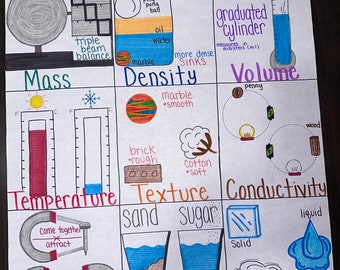 triple
beam
balance
Mass
ping
ball
oil
water
marble
more dense
sinks
Density
graduated
cylinder
measures
milliliters (ml)
Volume
F
F
Temperature
marble
•smooth
brick
•rough
cotton
•soft
Texture
penny
wood
Conductivity
Come together
attract
sand
sugar
Solid
liquid